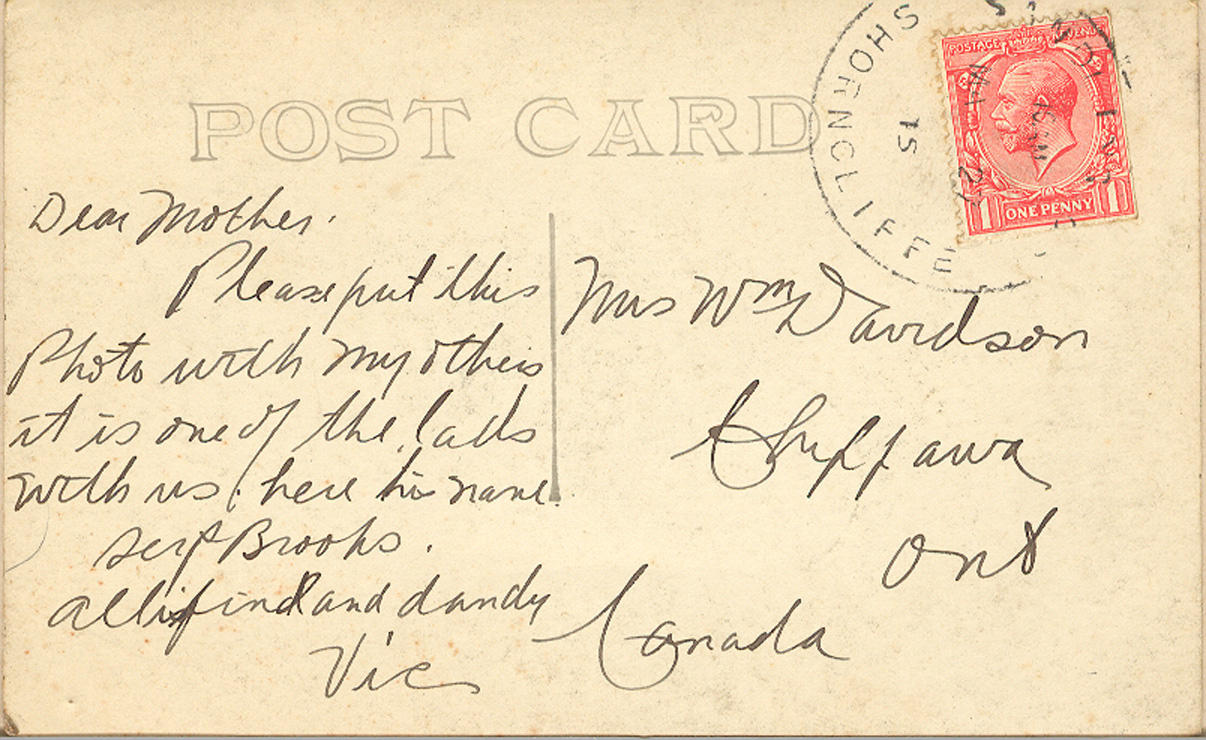 POST CARD
SHORNCLIFFE
15
POSTAGE
1 ONE PENNY 1
Dear Mother.
Please put this
Photo with my others
it is one of the lads
with us, here his name.
Serg Brooks.
all is find and dandy
Vic
Mrs Wm Davidson
Chippawa
Ont
Canada